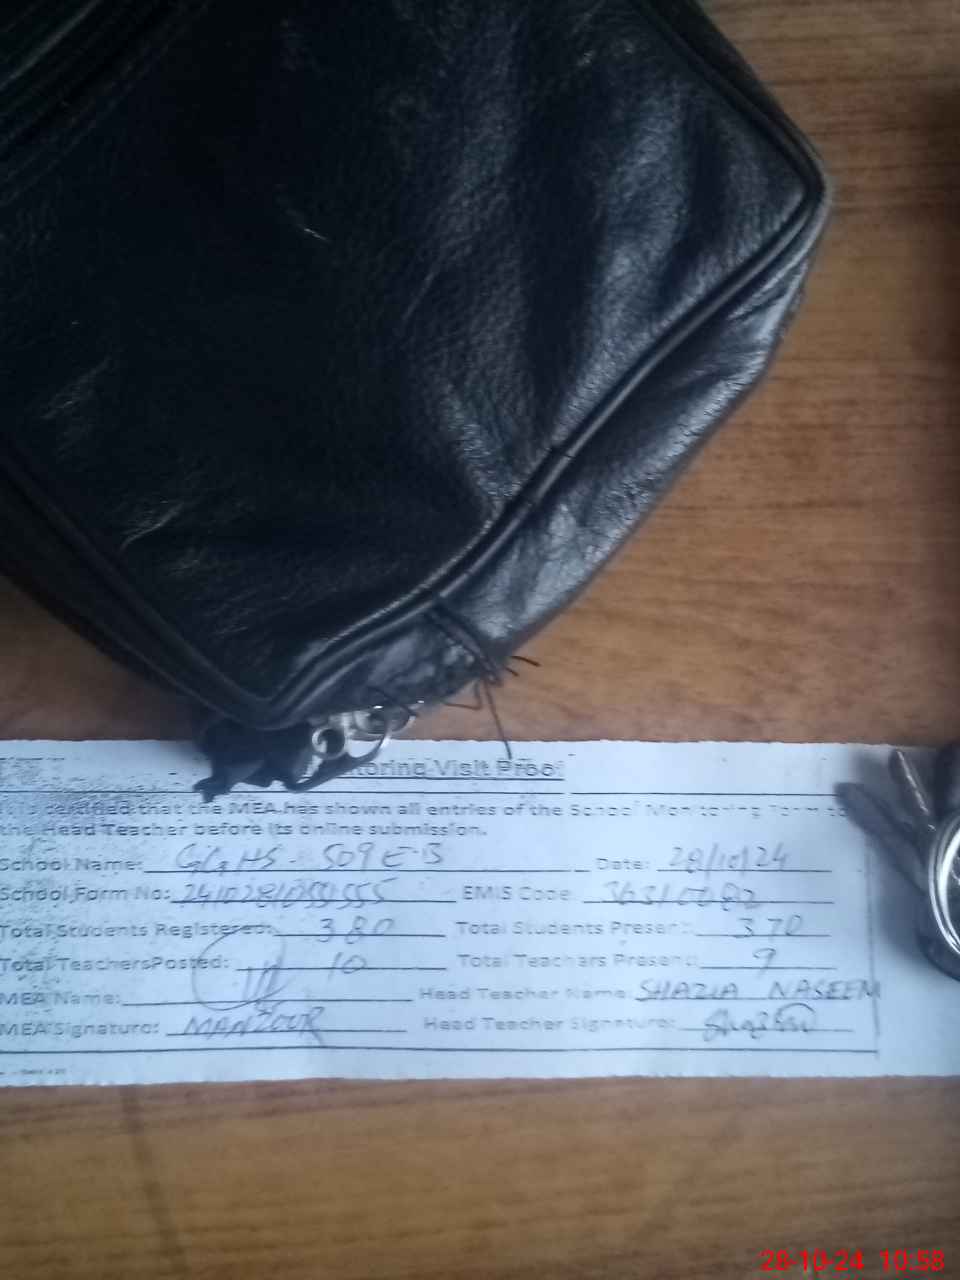 Monitoring Visit Proof
It is certified that the MEA has shown all entries of the School Monitoring Form to
the Head Teacher before its online submission.
School Name: GGHS - 509 E-B Date: 28/10/24
School Form No: EMIS Code: 36310082
Total Students Registered: 380 Total Students Present: 370
Total TeachersPosted: 10 Total Teachers Present: 9
MEA Name: Head Teacher Name: SHAZIA NASEEM
MEA Signature: MANZOOR Head Teacher Signature: Shazia
28-10-24 10:58